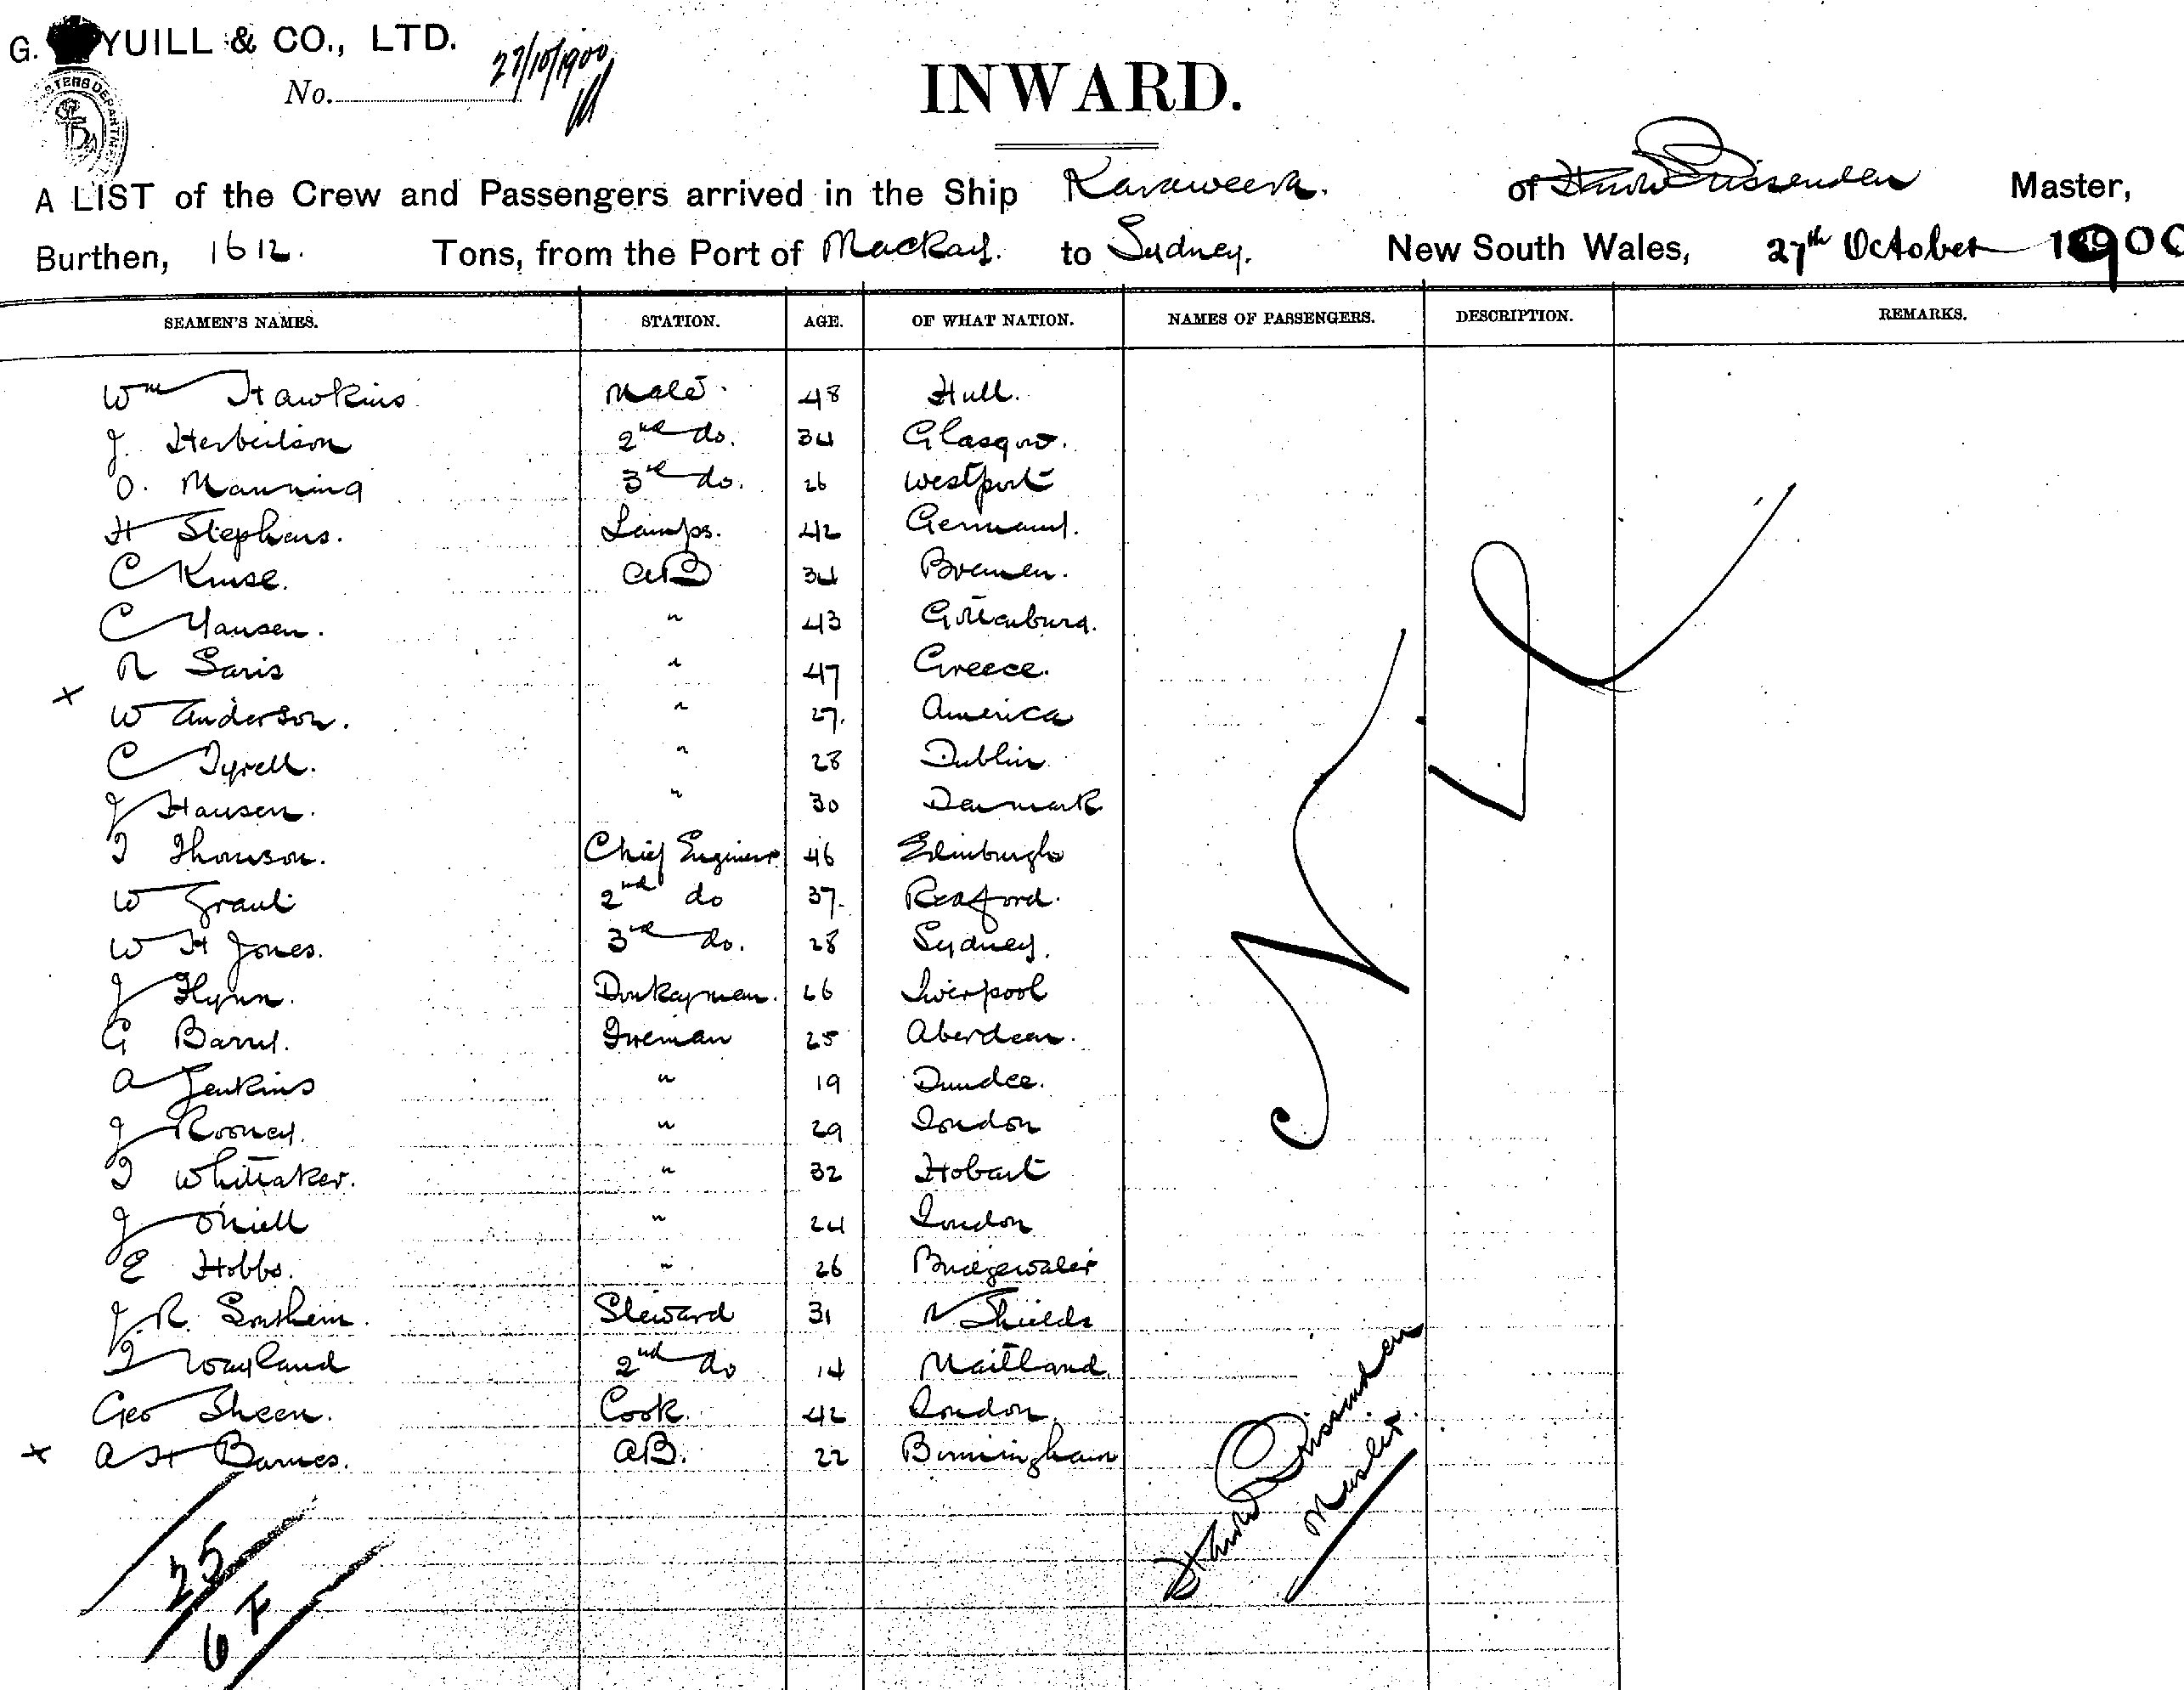 G. YUILL & CO., LTD.
No. 27/10/1900
INWARD.
A LIST of the Crew and Passengers arrived in the Ship Karaweera. of Master,
Burthen, 1612. Tons, from the Port of Mackay. to Sydney. New South Wales, 27th October 1900
SEAMEN'S NAMES. STATION. AGE. OF WHAT NATION. NAMES OF PASSENGERS. DESCRIPTION. REMARKS.
Wm Hawkins Mate. 48 Hull.
J. Herbeilson 2nd do. 34 Glasgow.
O. Manning 3rd do. 26 Westport
H Stephens. Lamps. 42 Germany.
C Kruse. AB 34 Bremen.
C Yansen. " 43 Gottenburg.
N Saris " 47 Greece.
x W Anderson. " 27. America
C Tyrell. " 28 Dublin
J Hansen. " 30 Denmark
T Thomson. Chief Engineer 46 Edinburgh
W Grant 2nd do 37. Reaford.
W H Jones. 3rd do. 28 Sydney.
J Flynn. Donkeyman. 26 Liverpool
G Barry. Fireman 25 Aberdeen.
A Jenkins " 19 Dundee.
J Rooney. " 29 London
T Whittaker. " 32 Hobart
J O'Niell " 24 London
E Hobbs. " 26 Bridgewater
J. R. Southern. Steward 31 N Shields
T Wayland 2nd do 14 Maitland
Geo Sheen. Cook. 42 London.
x A H Barnes. AB. 22 Birmingham
Nil
Master
25
6 F